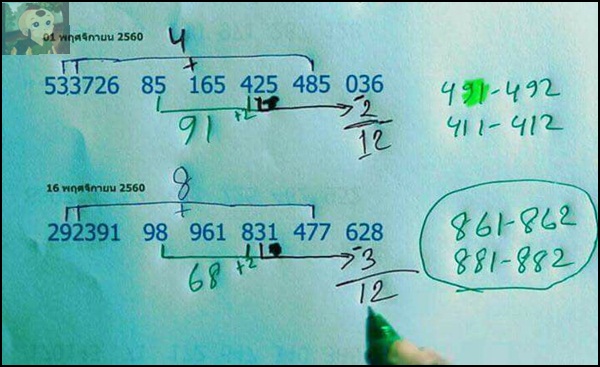 01 พฤศจิกายน 2560
4
+
533726 85 165 425 485 036
91 +2 -2
12
491-492
411-412
16 พฤศจิกายน 2560
8
+
292391 98 961 831 477 628
68 +2 -3
12
861-862
881-882